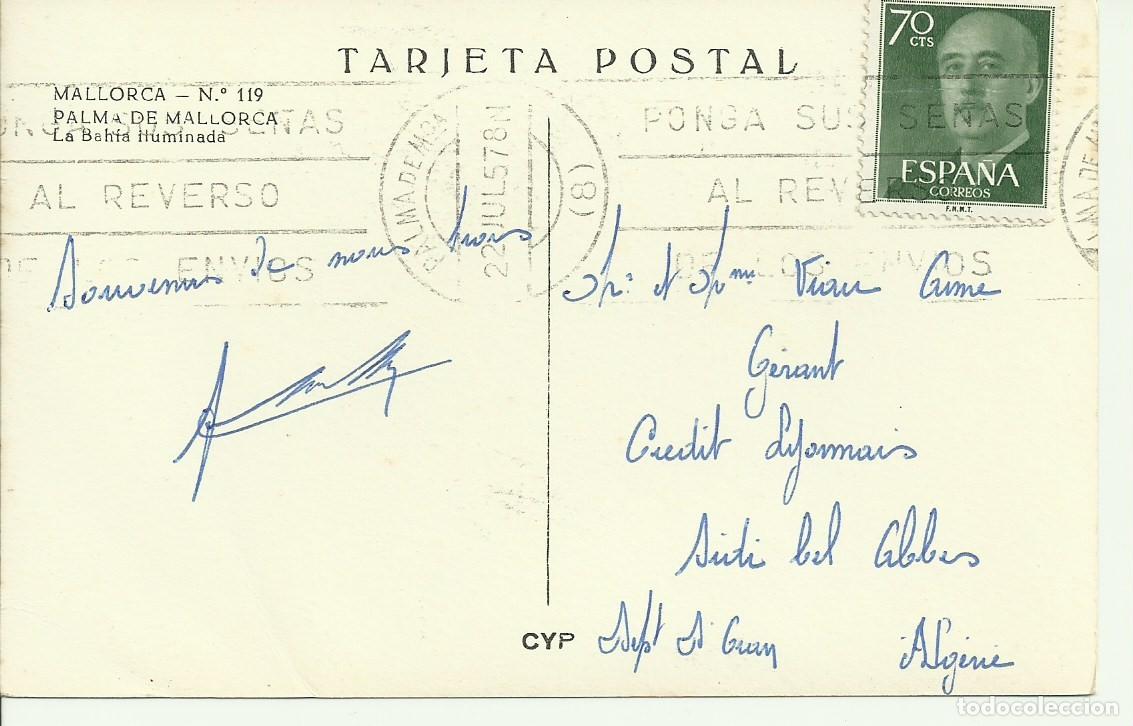 TARJETA POSTAL
70
CTS
ESPAÑA
CORREOS
F.N.M.T.
MALLORCA – N.º 119
PALMA DE MALLORCA
La Bahía Iluminada
PONGA SUS SEÑAS
AL REVERSO
DE LOS ENVIOS
PALMA DE MRCA
22 JUL 57 8N
(8)
PONGA SUS SEÑAS
AL REVERSO
DE LOS ENVIOS
Souvenirs de nous trois
Mr. et Mme Viau Aimé
Gérant
Credit Lyonnais
Sidi bel Abbes
Dept d'Oran
Algérie
CYP
todocoleccion